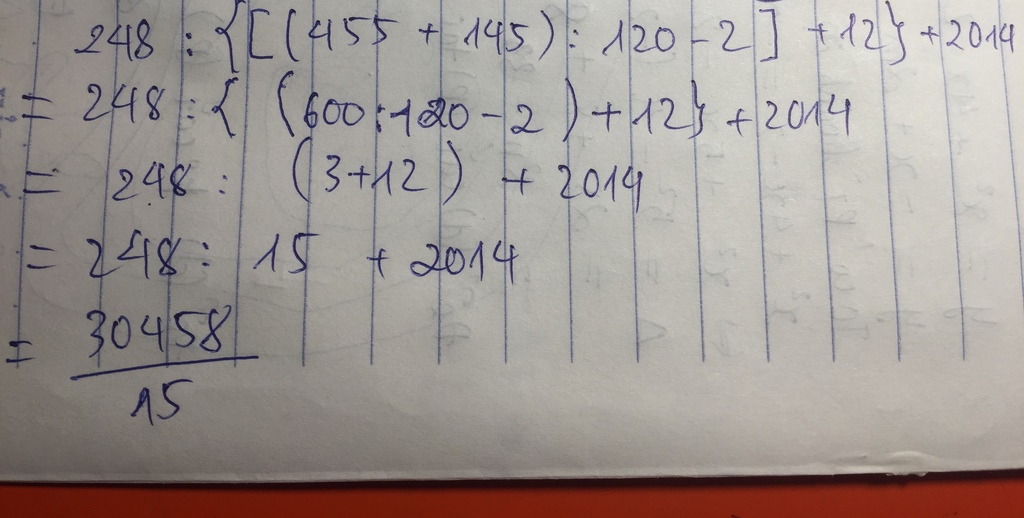 248 : {[(455 + 145) : 120 - 2] + 12} + 2014
= 248 : { (600 : 120 - 2) + 12} + 2014
= 248 : (3+12) + 2014
= 248 : 15 + 2014
= 30458
15